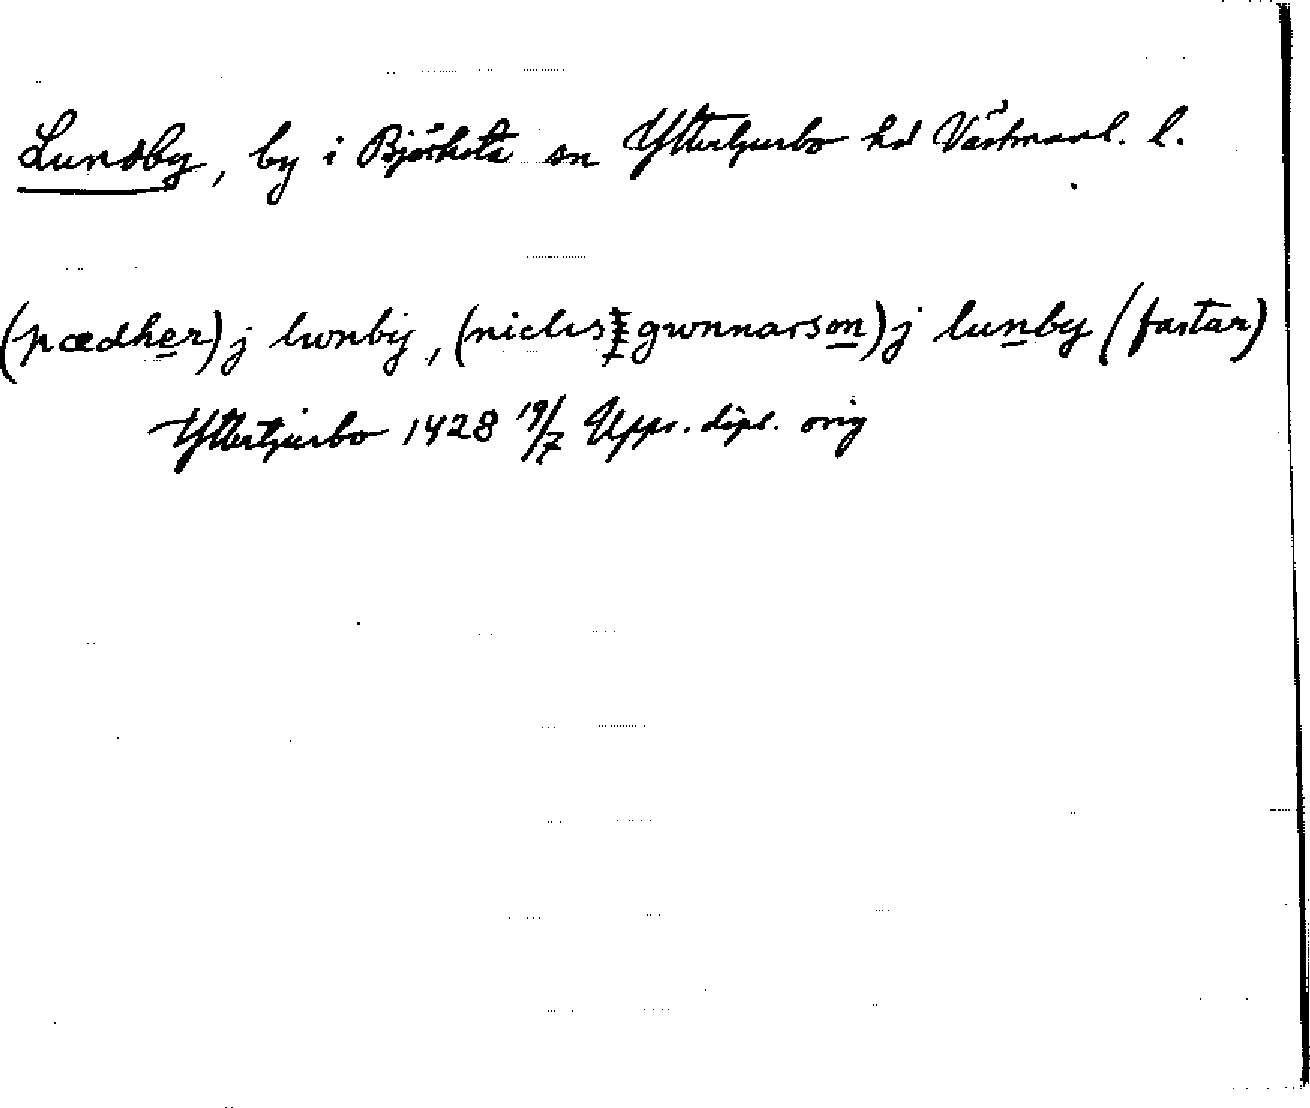 Lundby, by i Björksta sn Yttertjurbo hd Västmanl. l.
(pædher) j lwnby, (niclis gwnnarson) j lunby (fastar)
Yttertjurbo 1428 19/7 Upps. dipl. orig